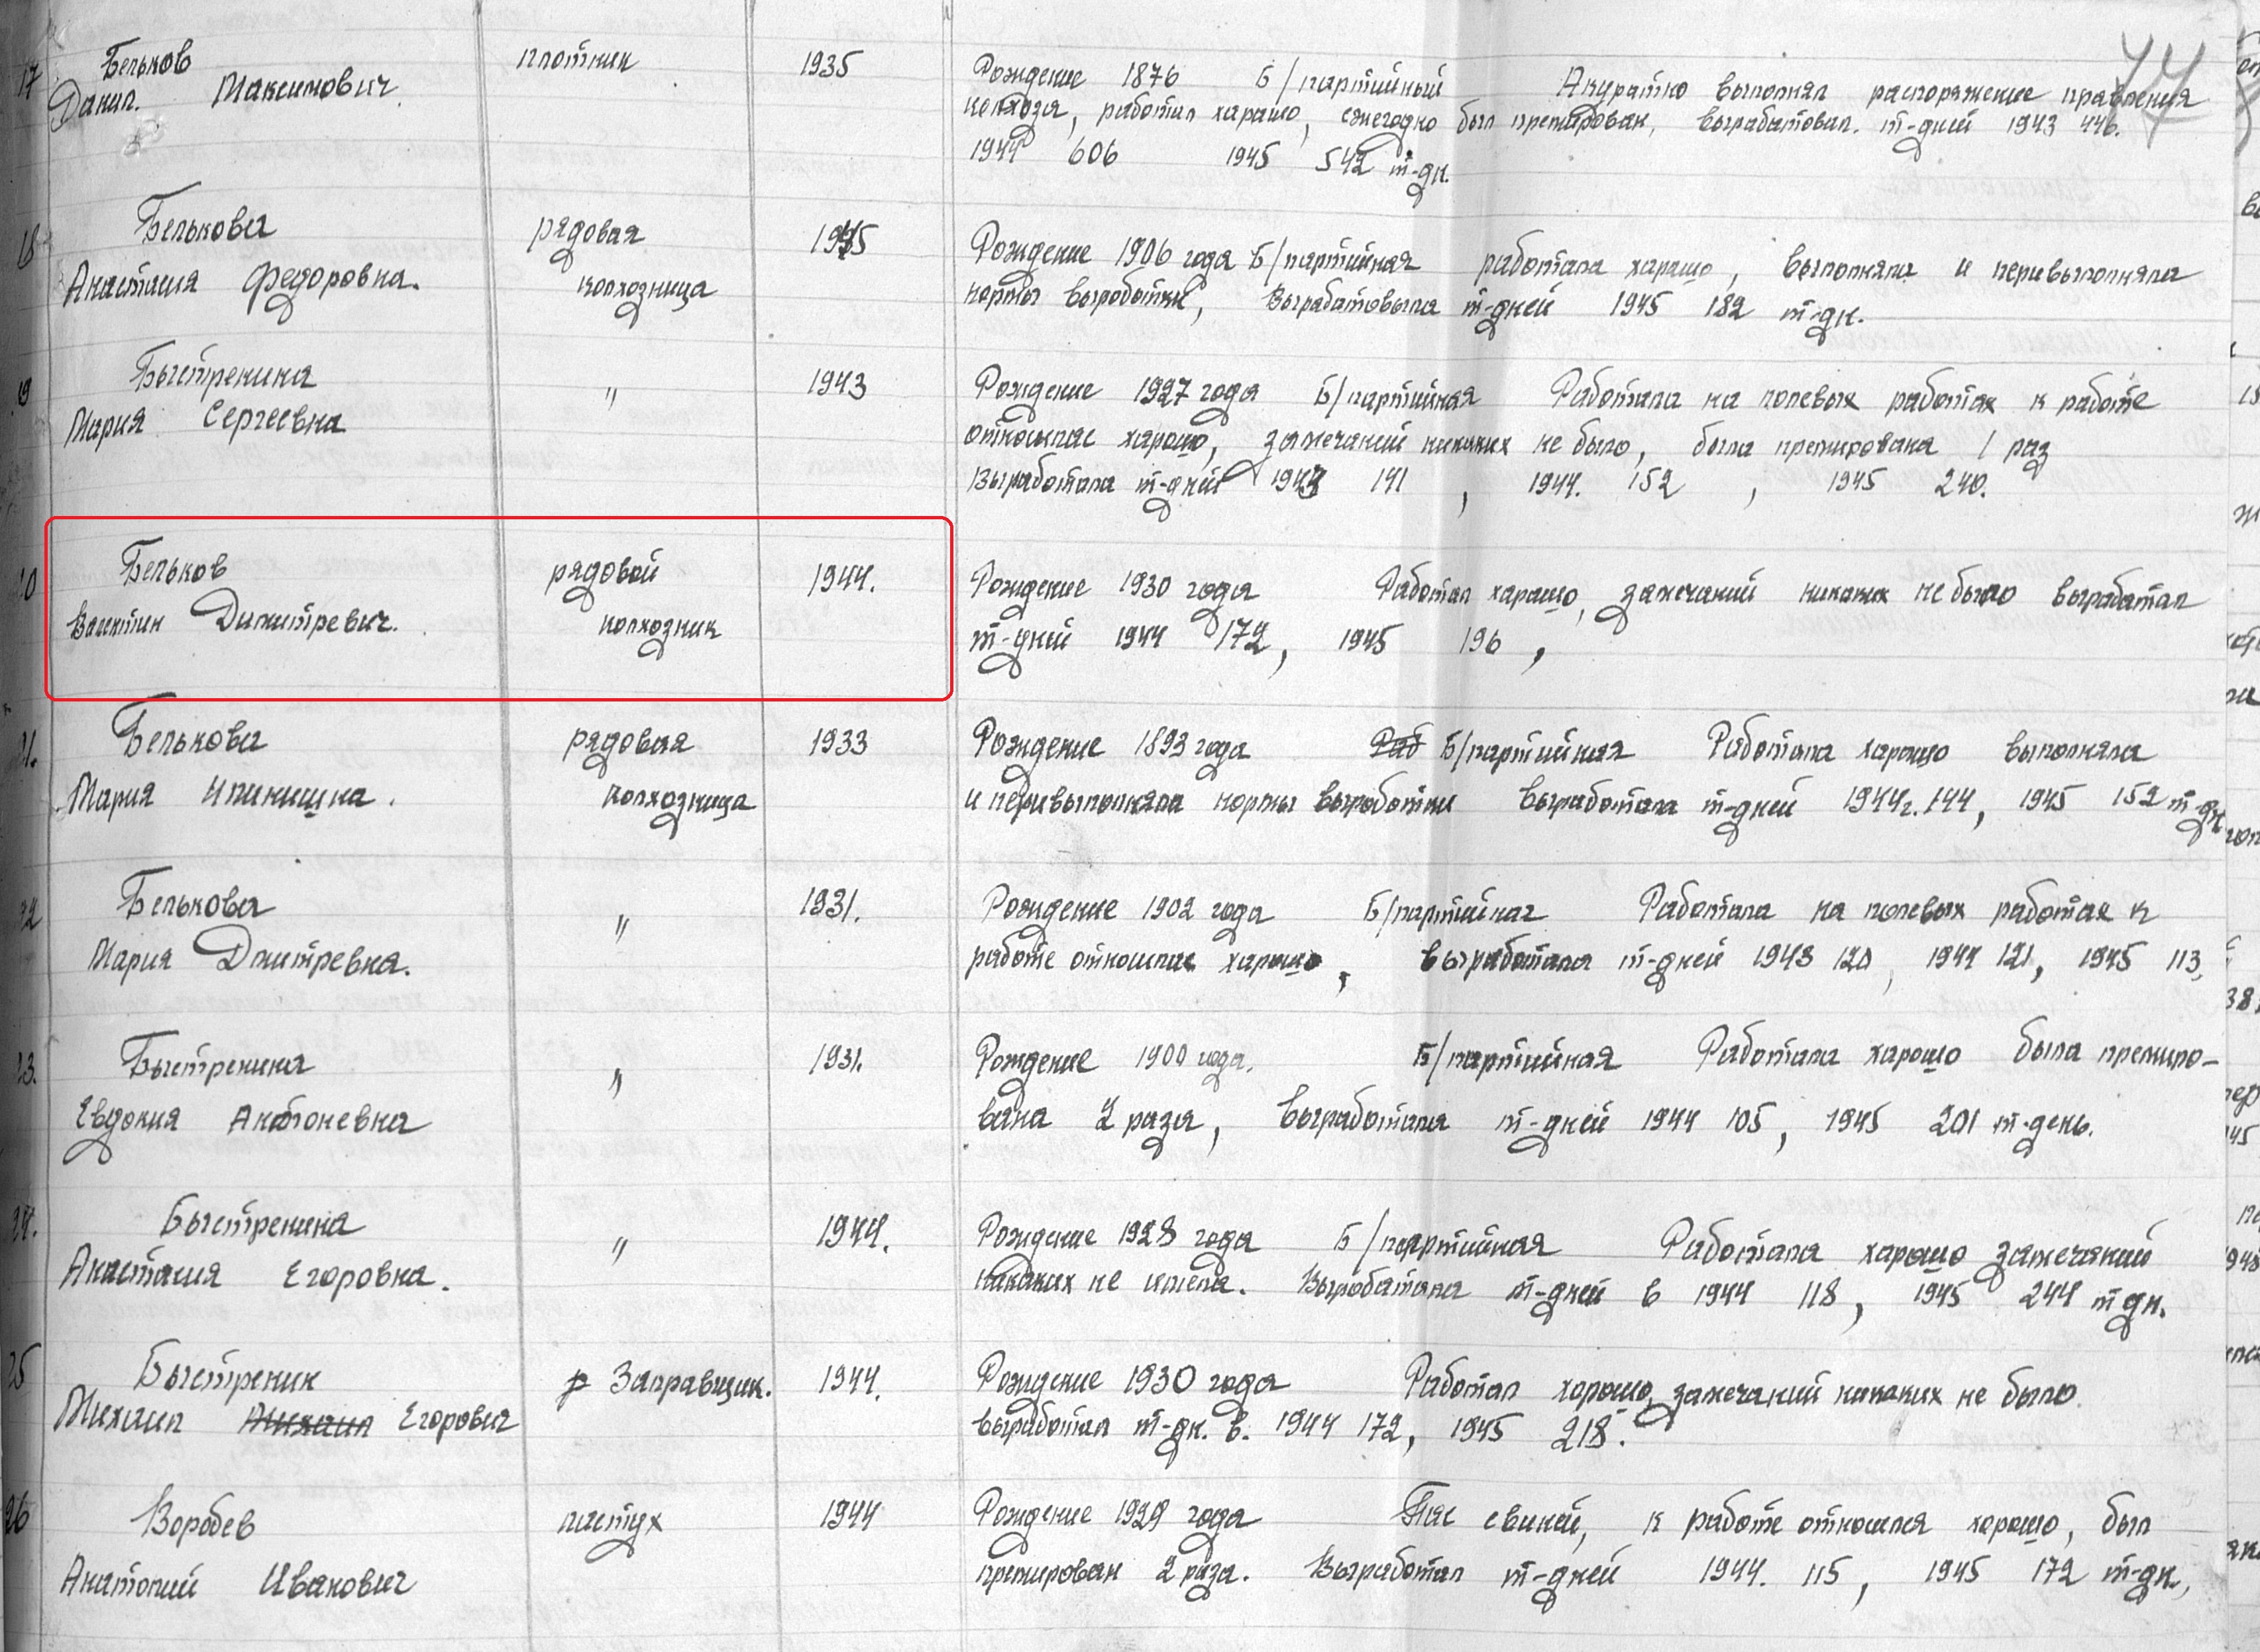 77
17 Бельков плотник 1935 Рождение 1876 Б/партийный Акуратно выполнял распоряжение правления
Данил. Максимович. колхоза, работал харашо, ежегодно был премирован, вырабатовал. т-дней 1943 446.
1944 606 1945 542 т-дн.
18 Белькова рядовая 1945 Рождение 1906 года Б/партийная работала харашо, выполняла и перивыполняла
Анастасия Федоровна. колхозница нормы выроботки, Вырабатовыла т-дней 1945 182 т-дн.
19 Быстренина " 1943 Рождение 1927 года Б/партийная Работала на полевых работах к работе
Мария Сергеевна относилас харашо, замечаний никаких не было, была премирована 1 раз
Выработала т-дней 1943 141, 1944. 152, 1945 240.
20 Бельков рядовой 1944. Рождение 1930 года Работал харашо, замечаний никаких не было выработал
Валентин Димитревич. колхозник т-дней 1944 172, 1945 196,
21. Белькова рядовая 1933 Рождение 1893 года Раб Б/партийная Работала харошо выполняла
Мария Илинишна. колхозница и перивыполняла нормы выработки выработала т-дней 1944г. 144, 1945 152 т-дн
22 Белькова " 1931. Рождение 1902 года Б/партийная Работала на полевых работах к
Мария Дмитревна. работе относилас харошо, выработала т-дней 1943 120, 1944 121, 1945 113,
23. Быстренина " 1931. Рождение 1900 года. Б/партийная Работала харошо была премиро-
Евдокия Антоневна вана 2 раза, Выработала т-дней 1944 105, 1945 201 т-день.
24. Быстренина " 1944. Рождение 1928 года Б/партийная Работала харошо замечаний
Анастасия Егоровна. никаких не имела. Выработала т-дней в 1944 118, 1945 244 т дн.
25 Быстренин р Заправщик. 1944. Рождение 1930 года Работал хорошо, замечаний никаких не было.
Михаил Михаил Егорович выработал т-дн. в. 1944 172, 1945 218.
26 Воробев пастух 1944 Рождение 1929 года Пас свиней, к работе относился хорошо, был
Анатолий Иванович премирован 2 раза. Выработал т-дней 1944. 115, 1945 172 т-дн,